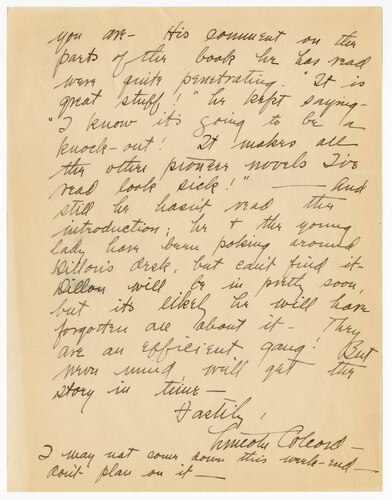 you are - His comment on the
parts of the book he has read
were quite penetrating. "It is
great stuff!" he kept saying -
"I know it's going to be a
knock-out! It makes all
the other pioneer novels I've
read look sick!" — And
still he hasn't read the
introduction; he & the young
lady have been poking around
Dillon's desk, but can't find it -
Dillon will be in pretty soon,
but its likely he will have
forgotten all about it - They
are an efficient gang! But
never mind, we'll get the
story in time -
Hastily,
Lincoln Colcord -
I may not come down this week-end -
don't plan on it -